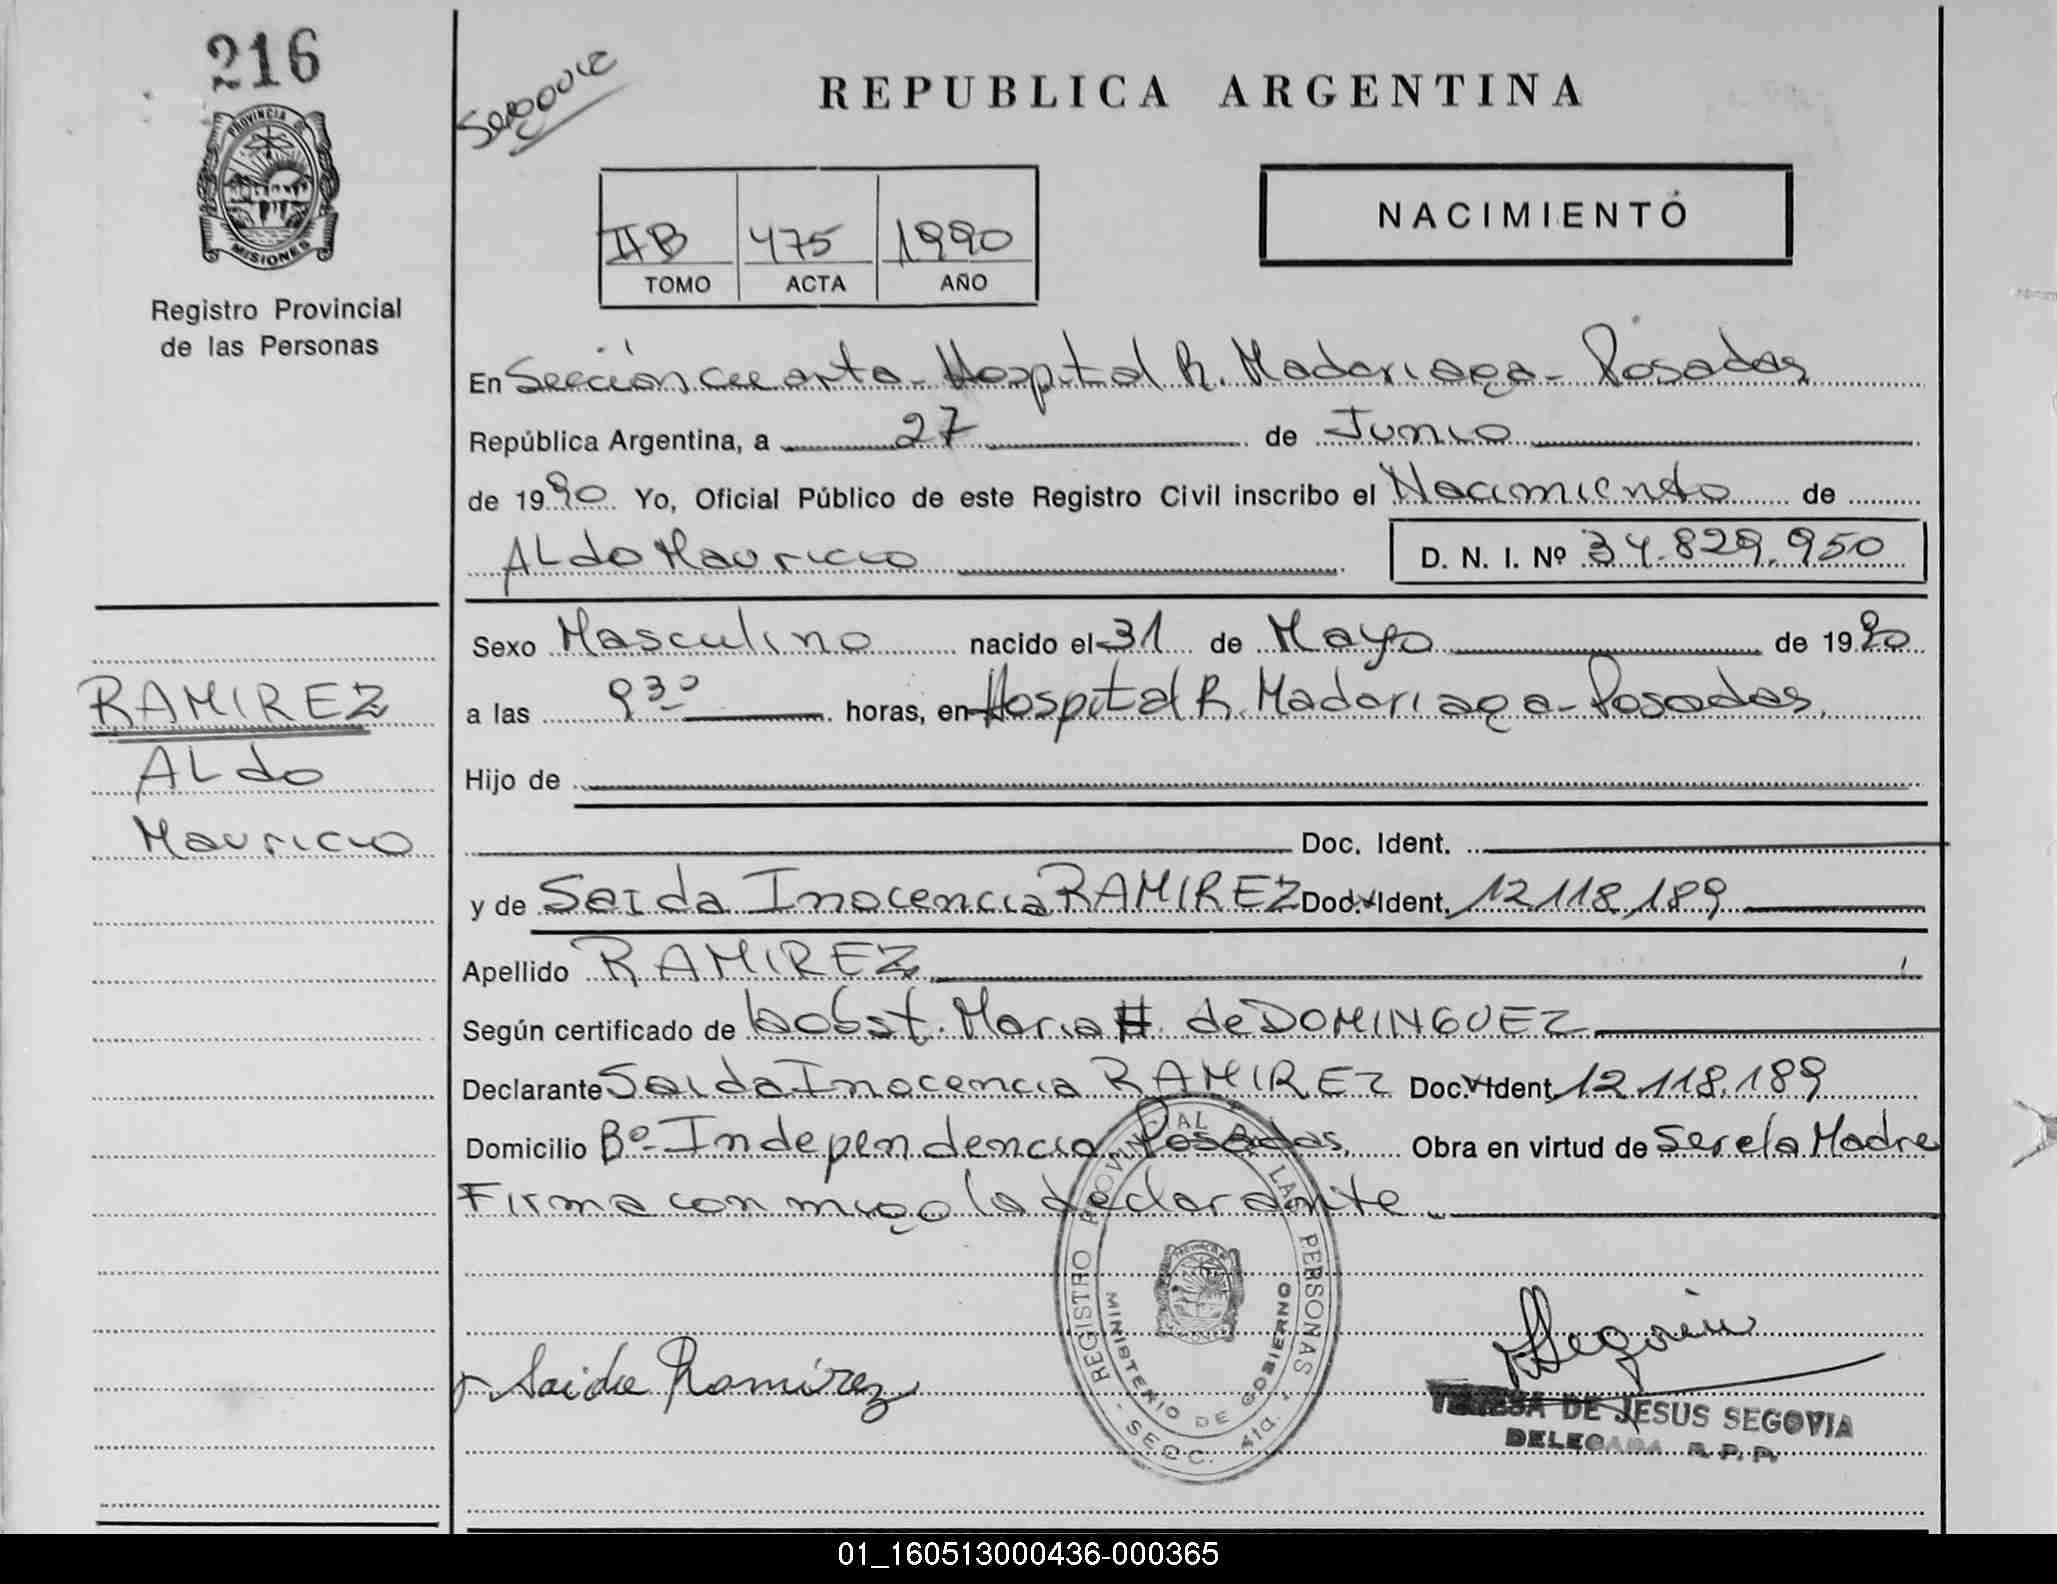 216
PROVINCIA DE
MISIONES
Registro Provincial
de las Personas
REPUBLICA ARGENTINA
NACIMIENTO
IIB 475 1990
TOMO ACTA AÑO
En Sección cuarta - Hospital R. Madariaga - Posadas
República Argentina, a 27 de Junio
de 1990 Yo, Oficial Público de este Registro Civil inscribo el Nacimiento de
ALdo Mauricio D. N. I. Nº 34.829.950
Sexo Masculino nacido el 31 de Mayo de 1990
a las 9 30 horas, en Hospital R. Madariaga - Posadas.
Hijo de
Doc. Ident.
y de Saida Inocencia RAMIREZ Doc. Ident. 12.118.189
Apellido RAMIREZ
Según certificado de la obst. Maria H. de DOMINGUEZ
Declarante Saida Inocencia RAMIREZ Doc. Ident. 12.118.189
Domicilio Bº Independencia Posadas. Obra en virtud de Ser la Madre
Firma con migo la declarante.
RAMIREZ
ALdo
Mauricio
REGISTRO PROVINCIAL DE LAS PERSONAS
MINISTERIO DE GOBIERNO
- SECC. 4ta. -
Saida Ramírez
TERESA DE JESUS SEGOVIA
DELEGADA R. P. P.
01_160513000436-000365